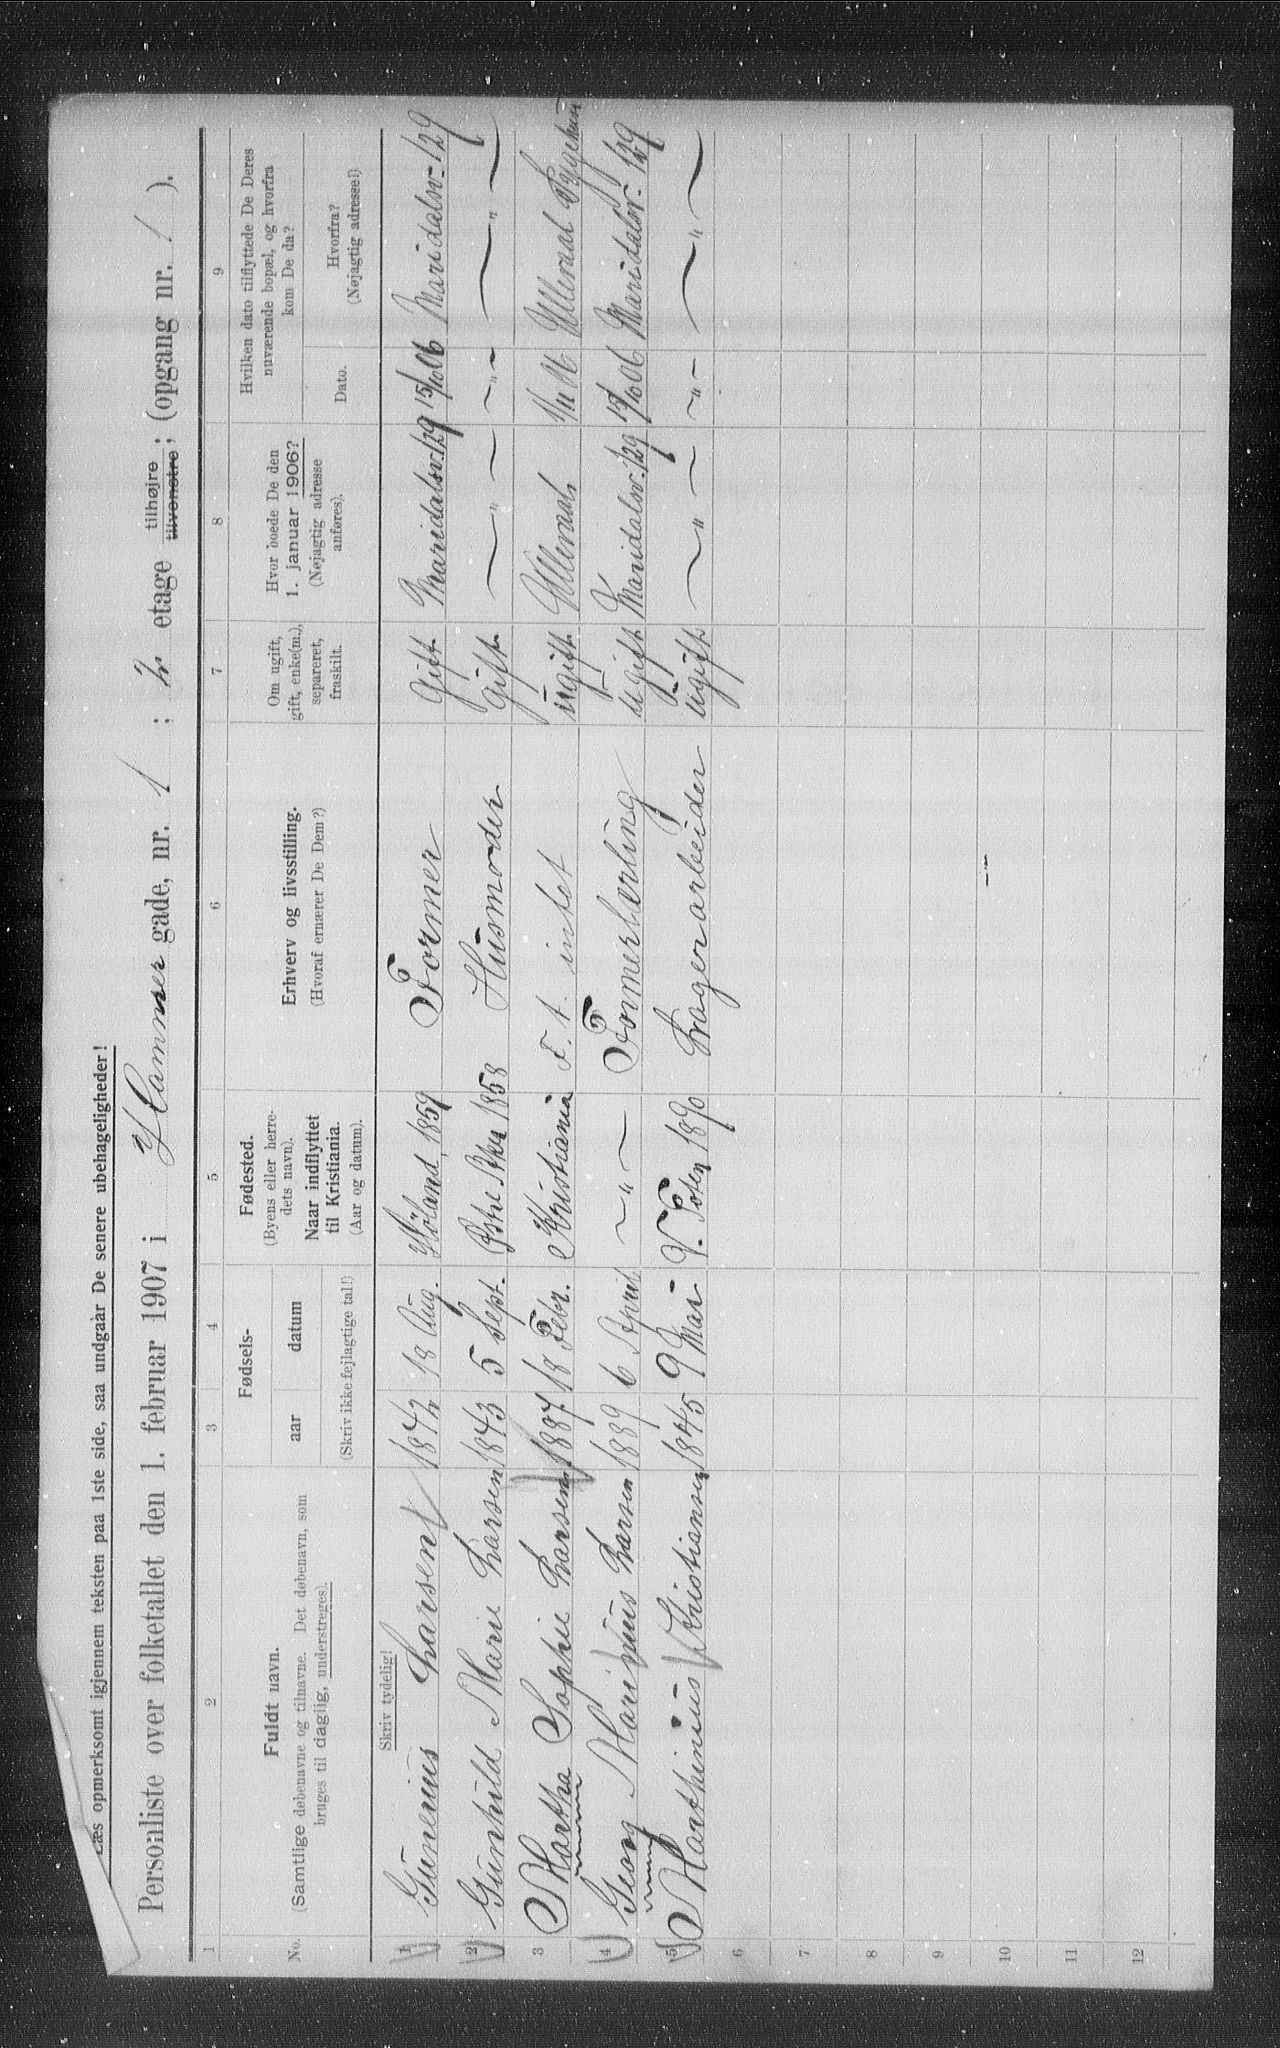 Læs opmerksomt igjennem teksten paa 1ste side, saa undgaar De senere ubehageligheder!
Personaliste over folketallet den 1. februar 1907 i Hammer gade, nr. 1 ; 2 etage tilhøjre tilvenstre; (opgang nr. 1 ).
1 2 3 4 5 6 7 8 9
No.
Fuldt navn.
(Samtlige døbenavne og tilnavne. Det døbenavn, som
bruges til daglig, understreges).
Fødsels-
aar datum
(Skriv ikke fejlagtige tal!)
Fødested.
(Byens eller herre-
dets navn).
Naar indflyttet
til Kristiania.
(Aar og datum).
Erhverv og livsstilling.
(Hvoraf ernærer De Dem?)
Om ugift,
gift, enke(m.),
separeret,
fraskilt.
Hvor boede De den
1. januar 1906?
(Nøjagtig adresse
anføres).
Hvilken dato tilflyttede De Deres
nuværende bopæl, og hvorfra
kom De da?
Dato.
Hvorfra?
(Nøjagtig adresse!)
Skriv tydelig!
1 Gunenius Larsen 1842 18 Aug. Høland, 1859 Former Gift Maridalsv. 129 15/10 06 Maridalsv. 129
2 Gunhild Marie Larsen 1843 5 Sept. Østre 1858 Husmoder Gift — " — — " — — " —
3 Martha Sophie Larsen 1887 18 Febr. Kristiania F. t. intet ugift Ullevaal 1/11 06 Ullevaal Sygehus
4 Georg Marinius Larsen 1889 6 April — " — Formerlærling ugift Maridalsv. 129 15/10 06 Maridalsv. 129
5 Marthinius Kristiansen 1845 9 Mai V. Toten 1890 Lagerarbeider ugift — " — — " — — " —
6
7
8
9
10
11
12